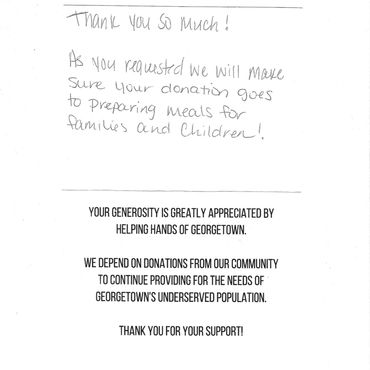 Thank you so much!
As you requested we will make
sure your donation goes
to preparing meals for
families and children!
YOUR GENEROSITY IS GREATLY APPRECIATED BY
HELPING HANDS OF GEORGETOWN.
WE DEPEND ON DONATIONS FROM OUR COMMUNITY
TO CONTINUE PROVIDING FOR THE NEEDS OF
GEORGETOWN'S UNDERSERVED POPULATION.
THANK YOU FOR YOUR SUPPORT!